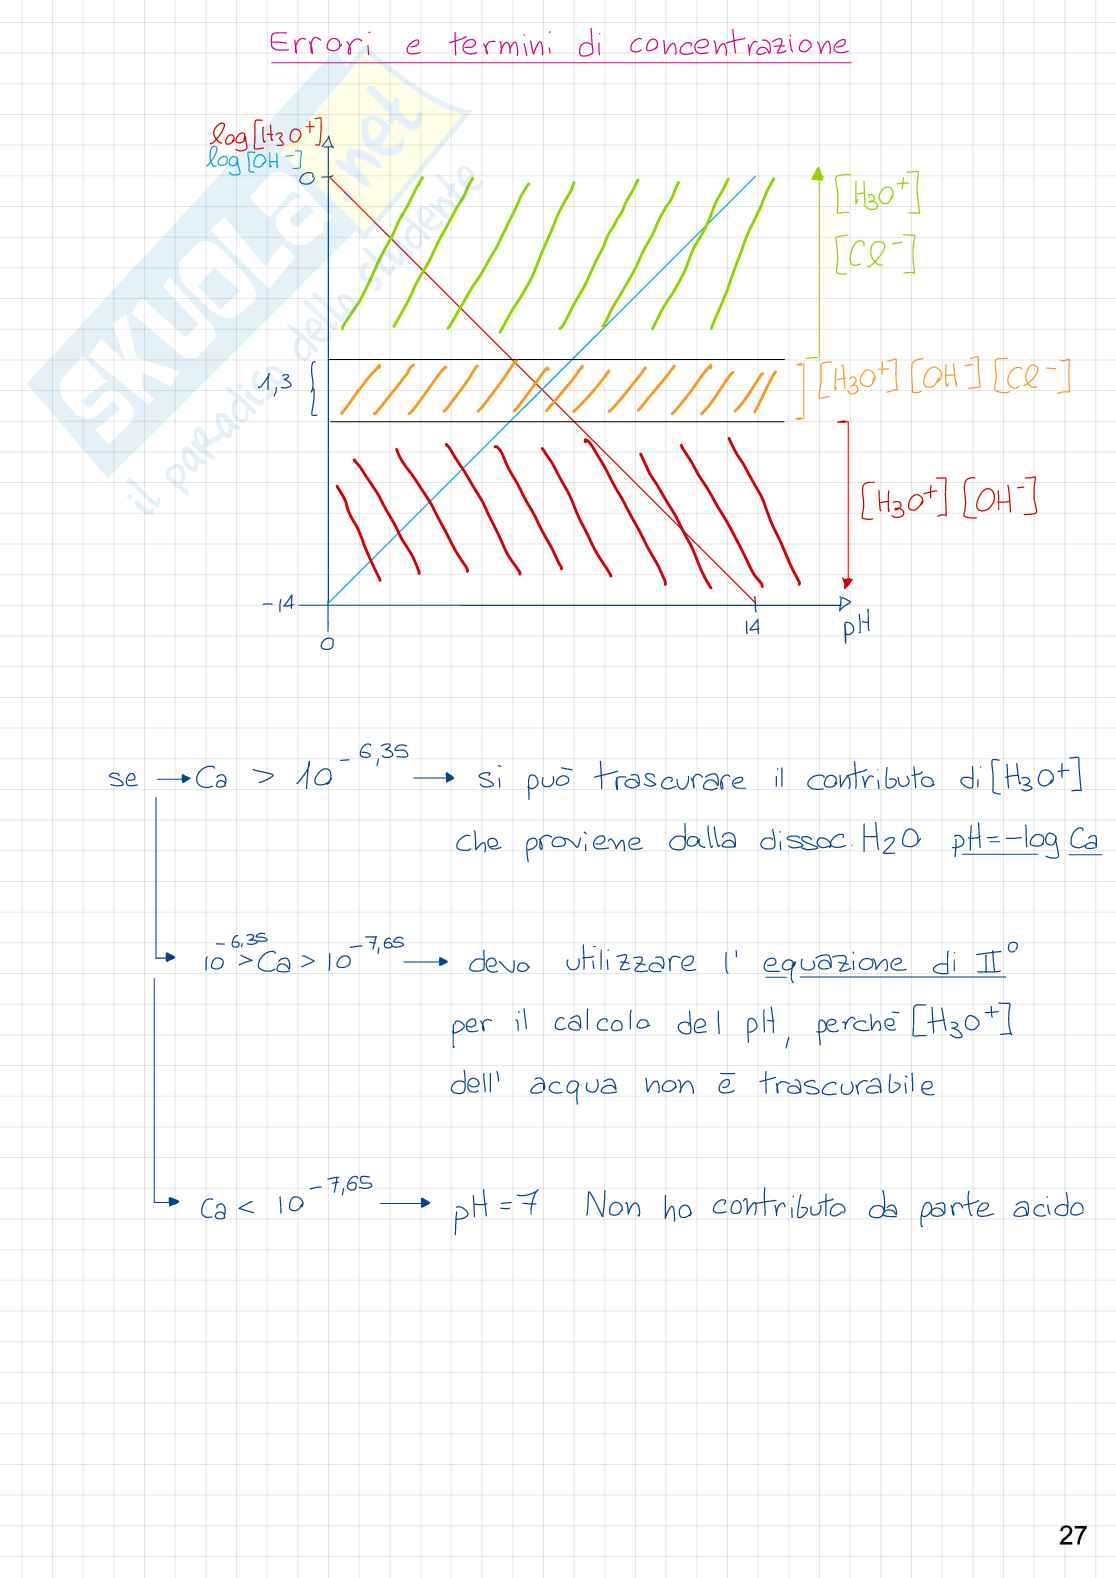 Errori e termini di concentrazione
log[H3O+]
log[OH-]
0
[H3O+]
[Cl-]
1,3
[H3O+] [OH-] [Cl-]
[H3O+] [OH-]
-14
0
14
pH
se → Ca > 10^-6,35 → si può trascurare il contributo di [H3O+]
che proviene dalla dissoc. H2O pH=-log Ca
10^-6,35 > Ca > 10^-7,65 → devo utilizzare l' equazione di II°
per il calcolo del pH, perchè [H3O+]
dell' acqua non è trascurabile
Ca < 10^-7,65 → pH=7 Non ho contributo da parte acido
SKUOLA.net
il paradiso dello studente
27